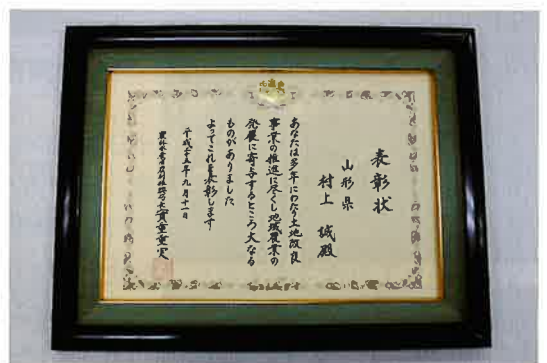 表彰状
山形県
村上 城殿
あなたは多年にわたり土地改良
事業の推進に尽くし地域農業の
発展に寄与するところ大なる
ものがありました
よってこれを表彰します
平成二十五年九月十一日
農林水産省農村振興局長實重重実